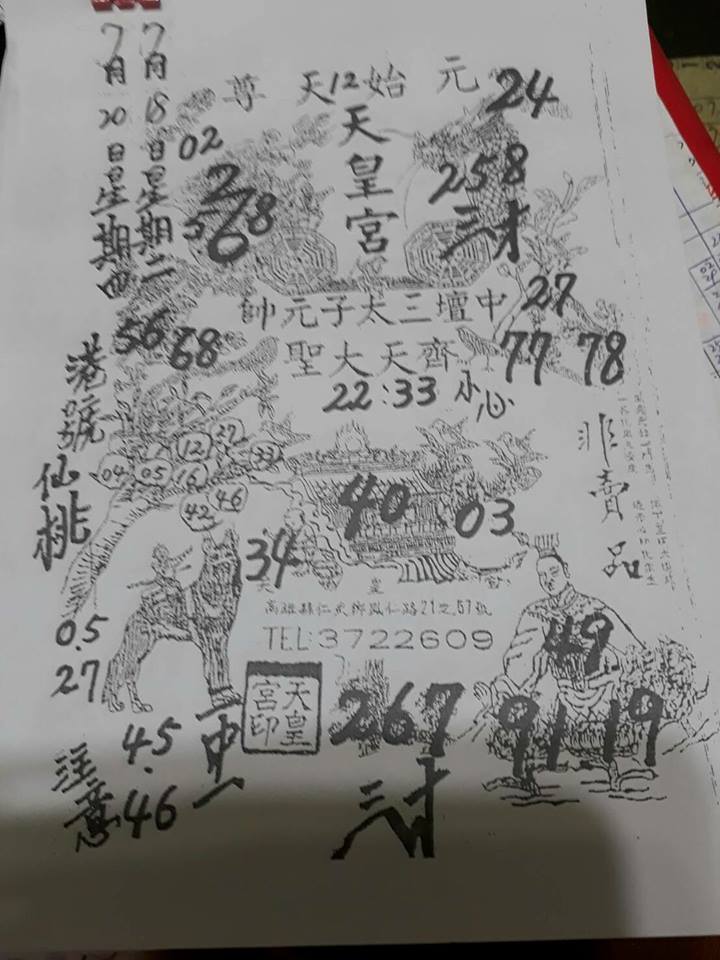 7月18日星期二
7月20日星期四
元始天尊
12
24
天皇宮
02
2
5 78
6
258
三才
中壇三太子元帥
27
齊天大聖
56 68
77 78
22:33 小心
港號仙桃
12 27
33
04 05 16
42 46
非賣品
40 03
34
天皇宮
高雄縣仁武鄉鳳仁路21之57號
TEL:3722609
05.
27
49
天皇宮印
267
三才
91 19
45.
46
注意